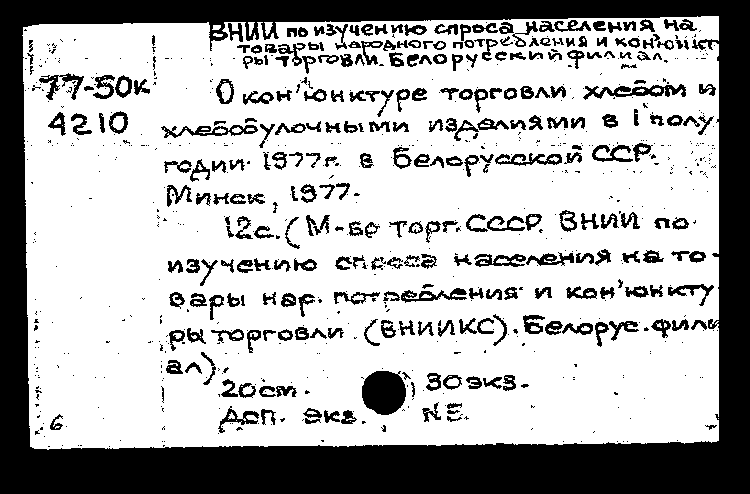 ВНИИ по изучению спроса населения на
товары народного потребления и кон'юнкту
ры торговли. Белорусский филиал.
77-50к
4210
О кон'юнктуре торговли хлебом и
хлебобулочными изделиями в I полу-
годии 1977г. в Белорусской ССР.
Минск, 1977.
12с. (М-во торг. СССР. ВНИИ по
изучению спроса населения на то-
вары нар. потребления и кон'юнкту
ры торговли (ВНИИКС). Белорус. фили
ал).
20см. 30экз.
Доп. экз. №
6